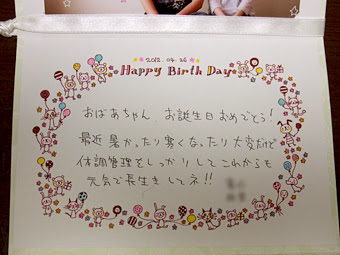 2012.04.26
Happy Birth Day
おばあちゃん お誕生日おめでとう!
最近 暑かったり寒くなったり大変だけど
体調管理をしっかりしてこれからも
元気で長生きしてネ!!